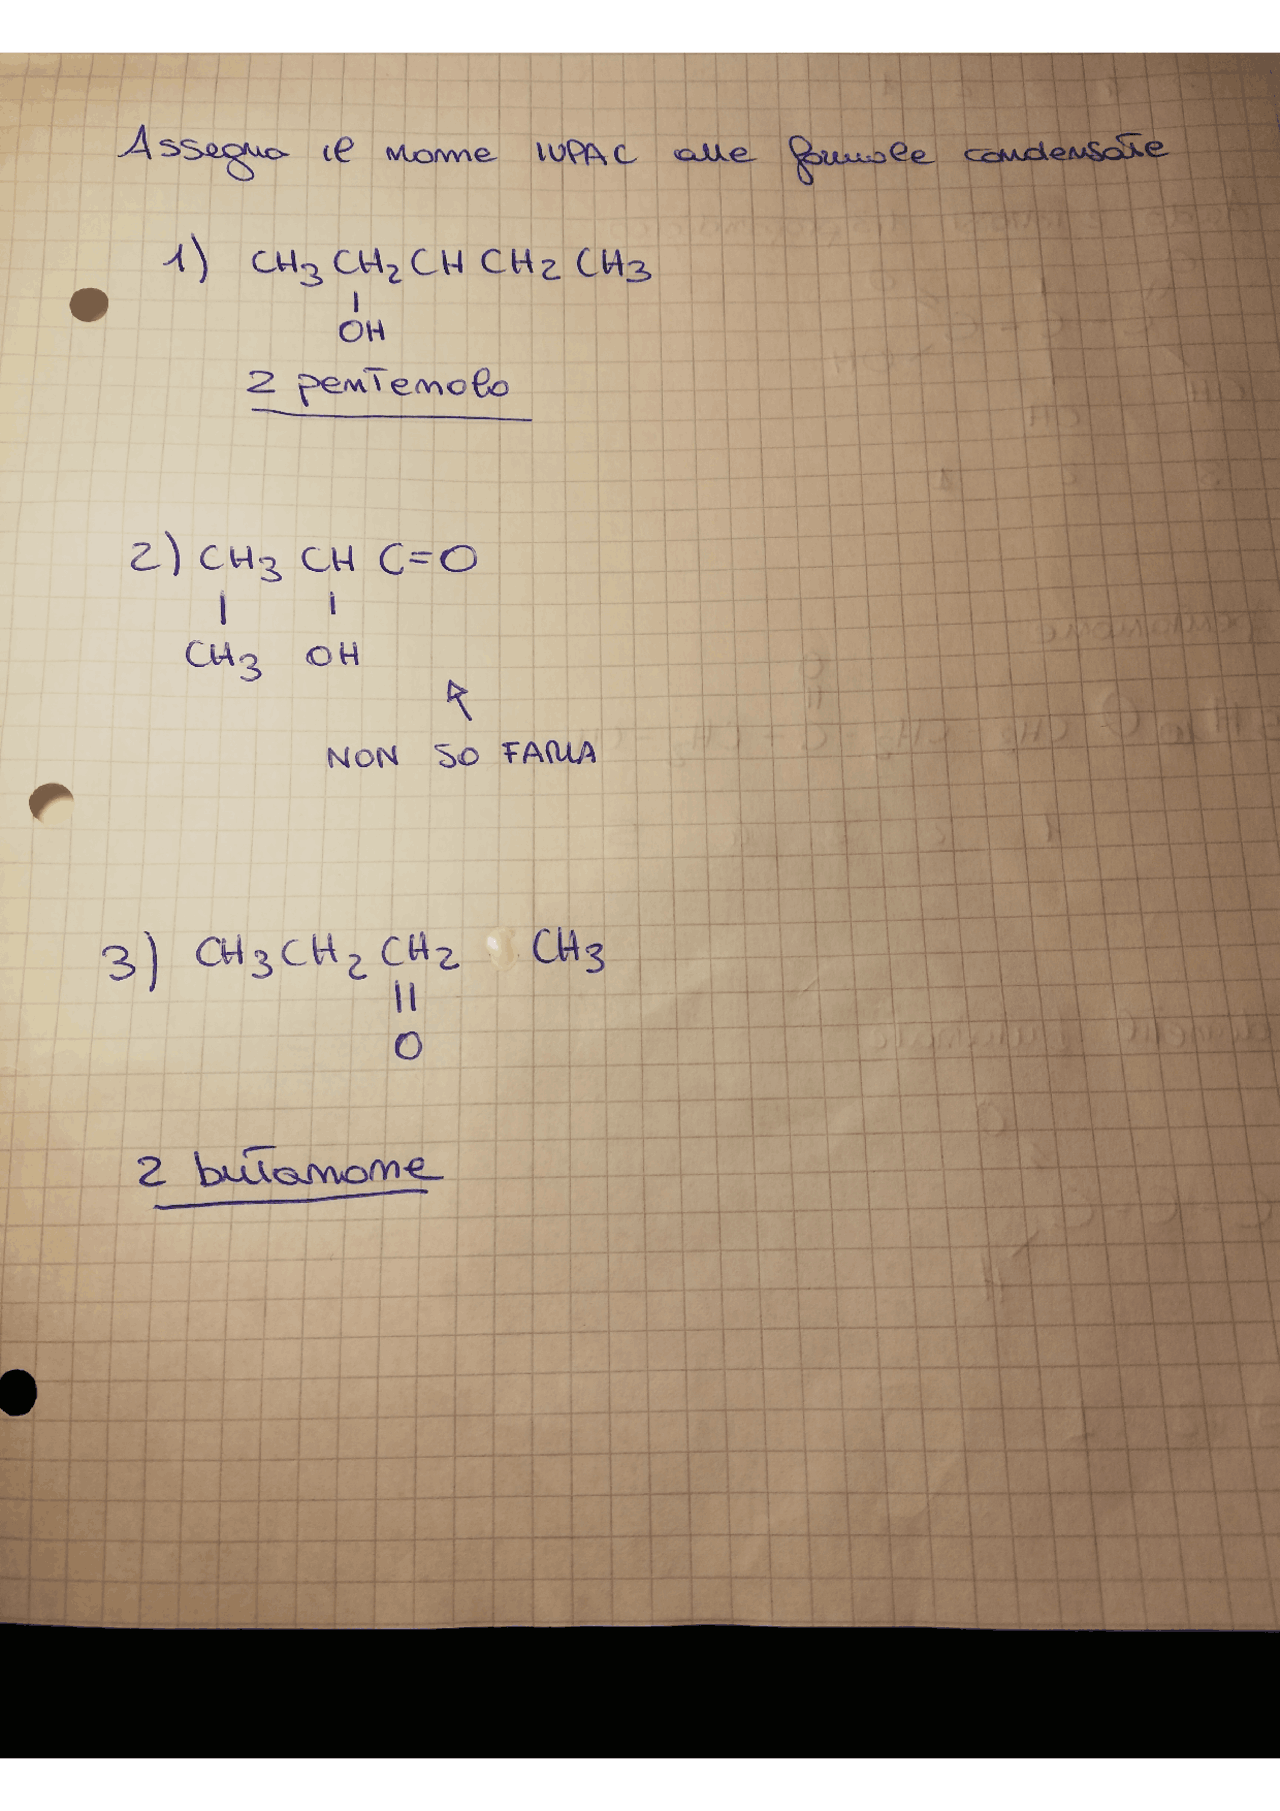 Assegna il nome IUPAC alle formule condensate
1) CH3 CH2 CH CH2 CH3
OH
2 pentenolo
2) CH3 CH C=O
CH3 OH
NON SO FARLA
3) CH3 CH2 CH2 CH3
O
2 butanone